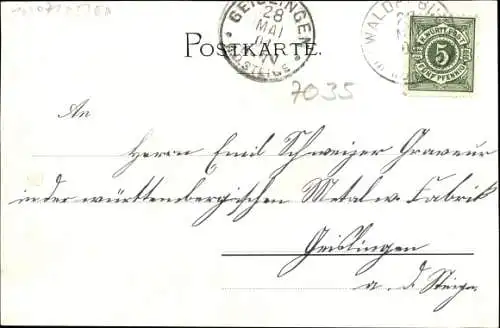 GEISLINGEN
28
MAI
A.STEIGE
WALDENBUCH
POSTKARTE.
K. WÜRTT. POST
5
FÜNF PFENNIG
7035
An
Herrn Emil Schweizer Graveur
in der württenbergischen Metalw. Fabrik
Geislingen
a. d. Steige.